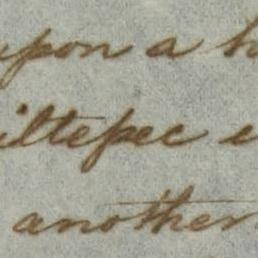 upon a
iltepec
another